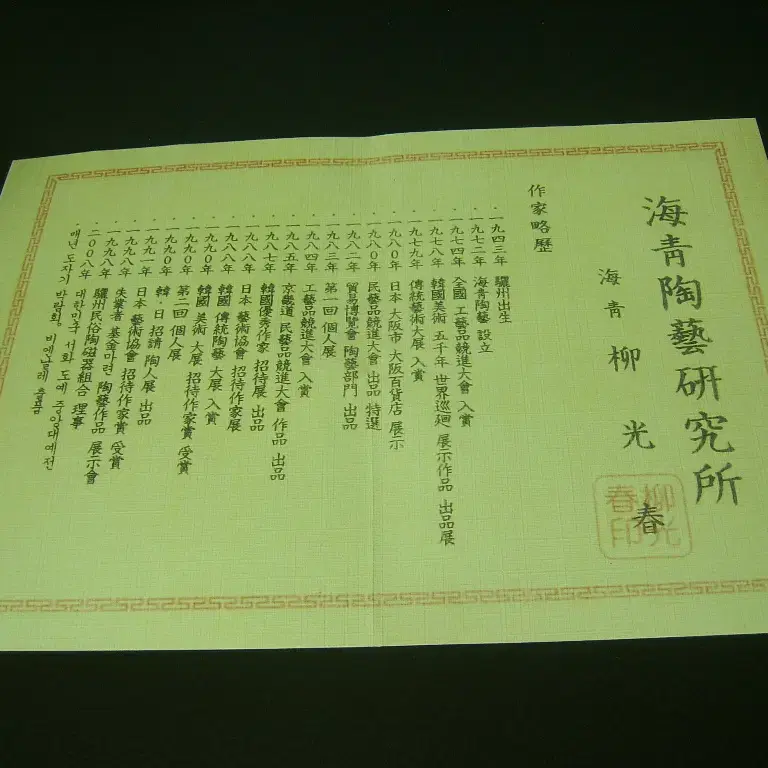 海青陶藝研究所
海青 柳光春
柳光春印
作家略歷
· 一九四三年 驪州出生
· 一九七二年 海青陶藝 設立
· 一九七四年 全國 工藝品競進大會 入賞
· 一九七八年 韓國美術 五千年 世界巡廻 展示作品 出品展
· 一九七九年 傳統藝術大展 入賞
· 一九八0年 日本 大阪市 大阪百貨店 展示
· 一九八0年 民藝品競進大會 出品 特選
· 一九八二年 貿易博覽會 陶藝部門 出品
· 一九八三年 第一回 個人展
· 一九八四年 工藝品競進大會 入賞
· 一九八五年 京畿道 民藝品競進大會 作品 出品
· 一九八七年 韓國優秀作家 招待展 出品
· 一九八八年 日本 藝術協會 招待作家展
· 一九八八年 韓國 傳統陶藝 大展 入賞
· 一九九0年 韓國 美術 大展 招待作家賞 受賞
· 一九九0年 第二回 個人展
· 一九九0年 韓·日 招請 陶人展 出品
· 一九九一年 日本 藝術協會 招待作家賞 受賞
· 一九九八年 失業者 基金마련 陶藝作品 展示會
· 一九九八年 驪州民俗陶磁器組合 理事
· 二00八年 대한민국 서화 도예 중앙대예전
매년 도자기 박람회, 비엔날레 출품